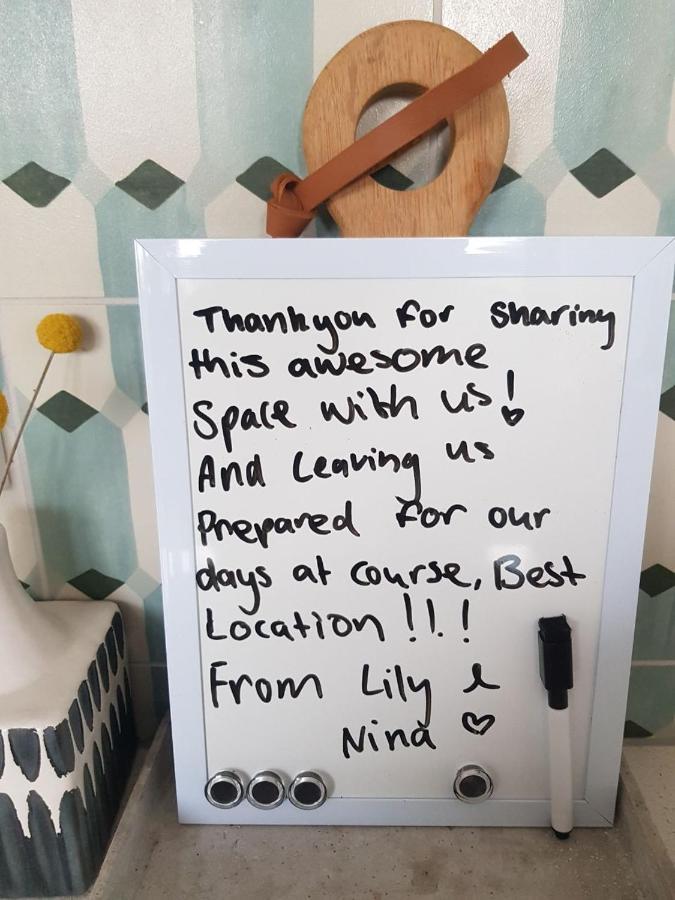 Thankyou for sharing
this awesome
Space with us!
And Leaving us
Prepared for our
days at course, Best
Location !!.!
From Lily &
Nina ♡